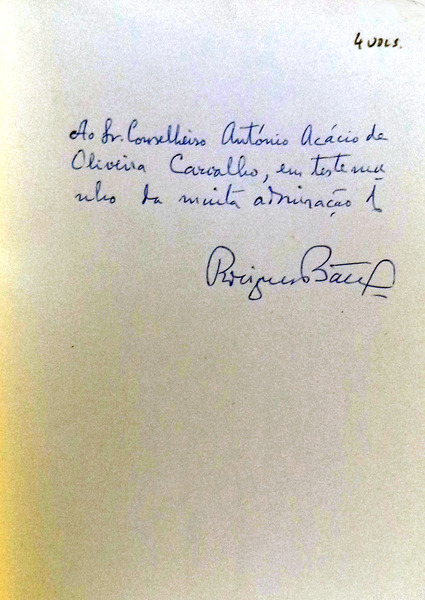 4 VOLS.
Ao Sr. Conselheiro António Acácio de
Oliveira Carvalho, em testemu
nho da muita admiração d
Rodrigues